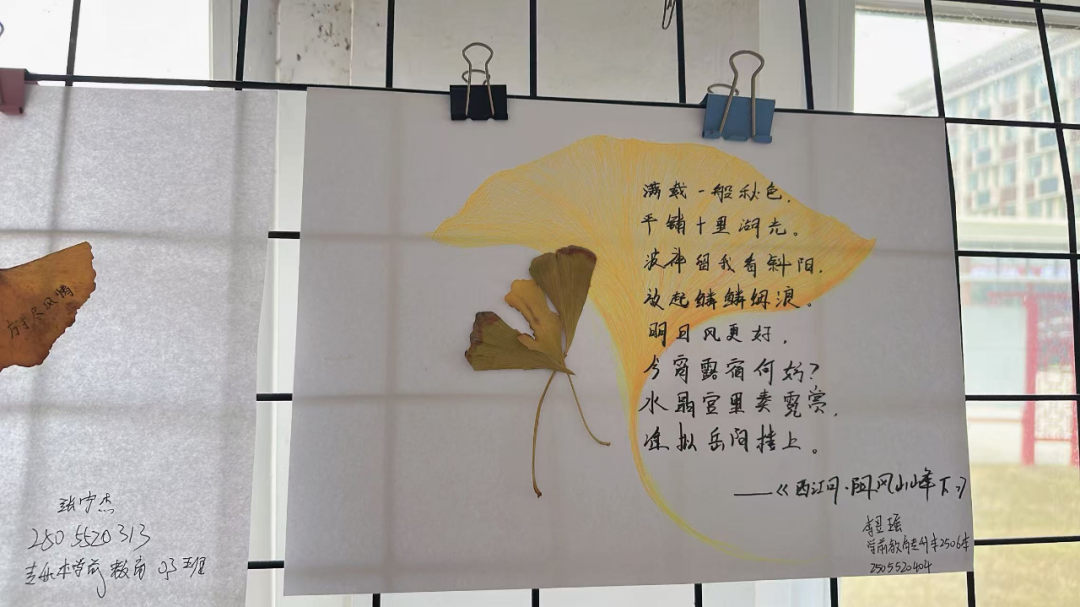 方寸尽风情
2505520313
专升本学前教育 03班
满载一般秋色,
平铺十里湖光。
波神留我看斜阳,
放起鳞鳞细浪。
明日风更好,
今宵露宿何妨?
水晶宫里奏霓赏,
准拟岳阳楼上。
——《西江月·阻风山峰下》
学前教育专升本2506
2505520404